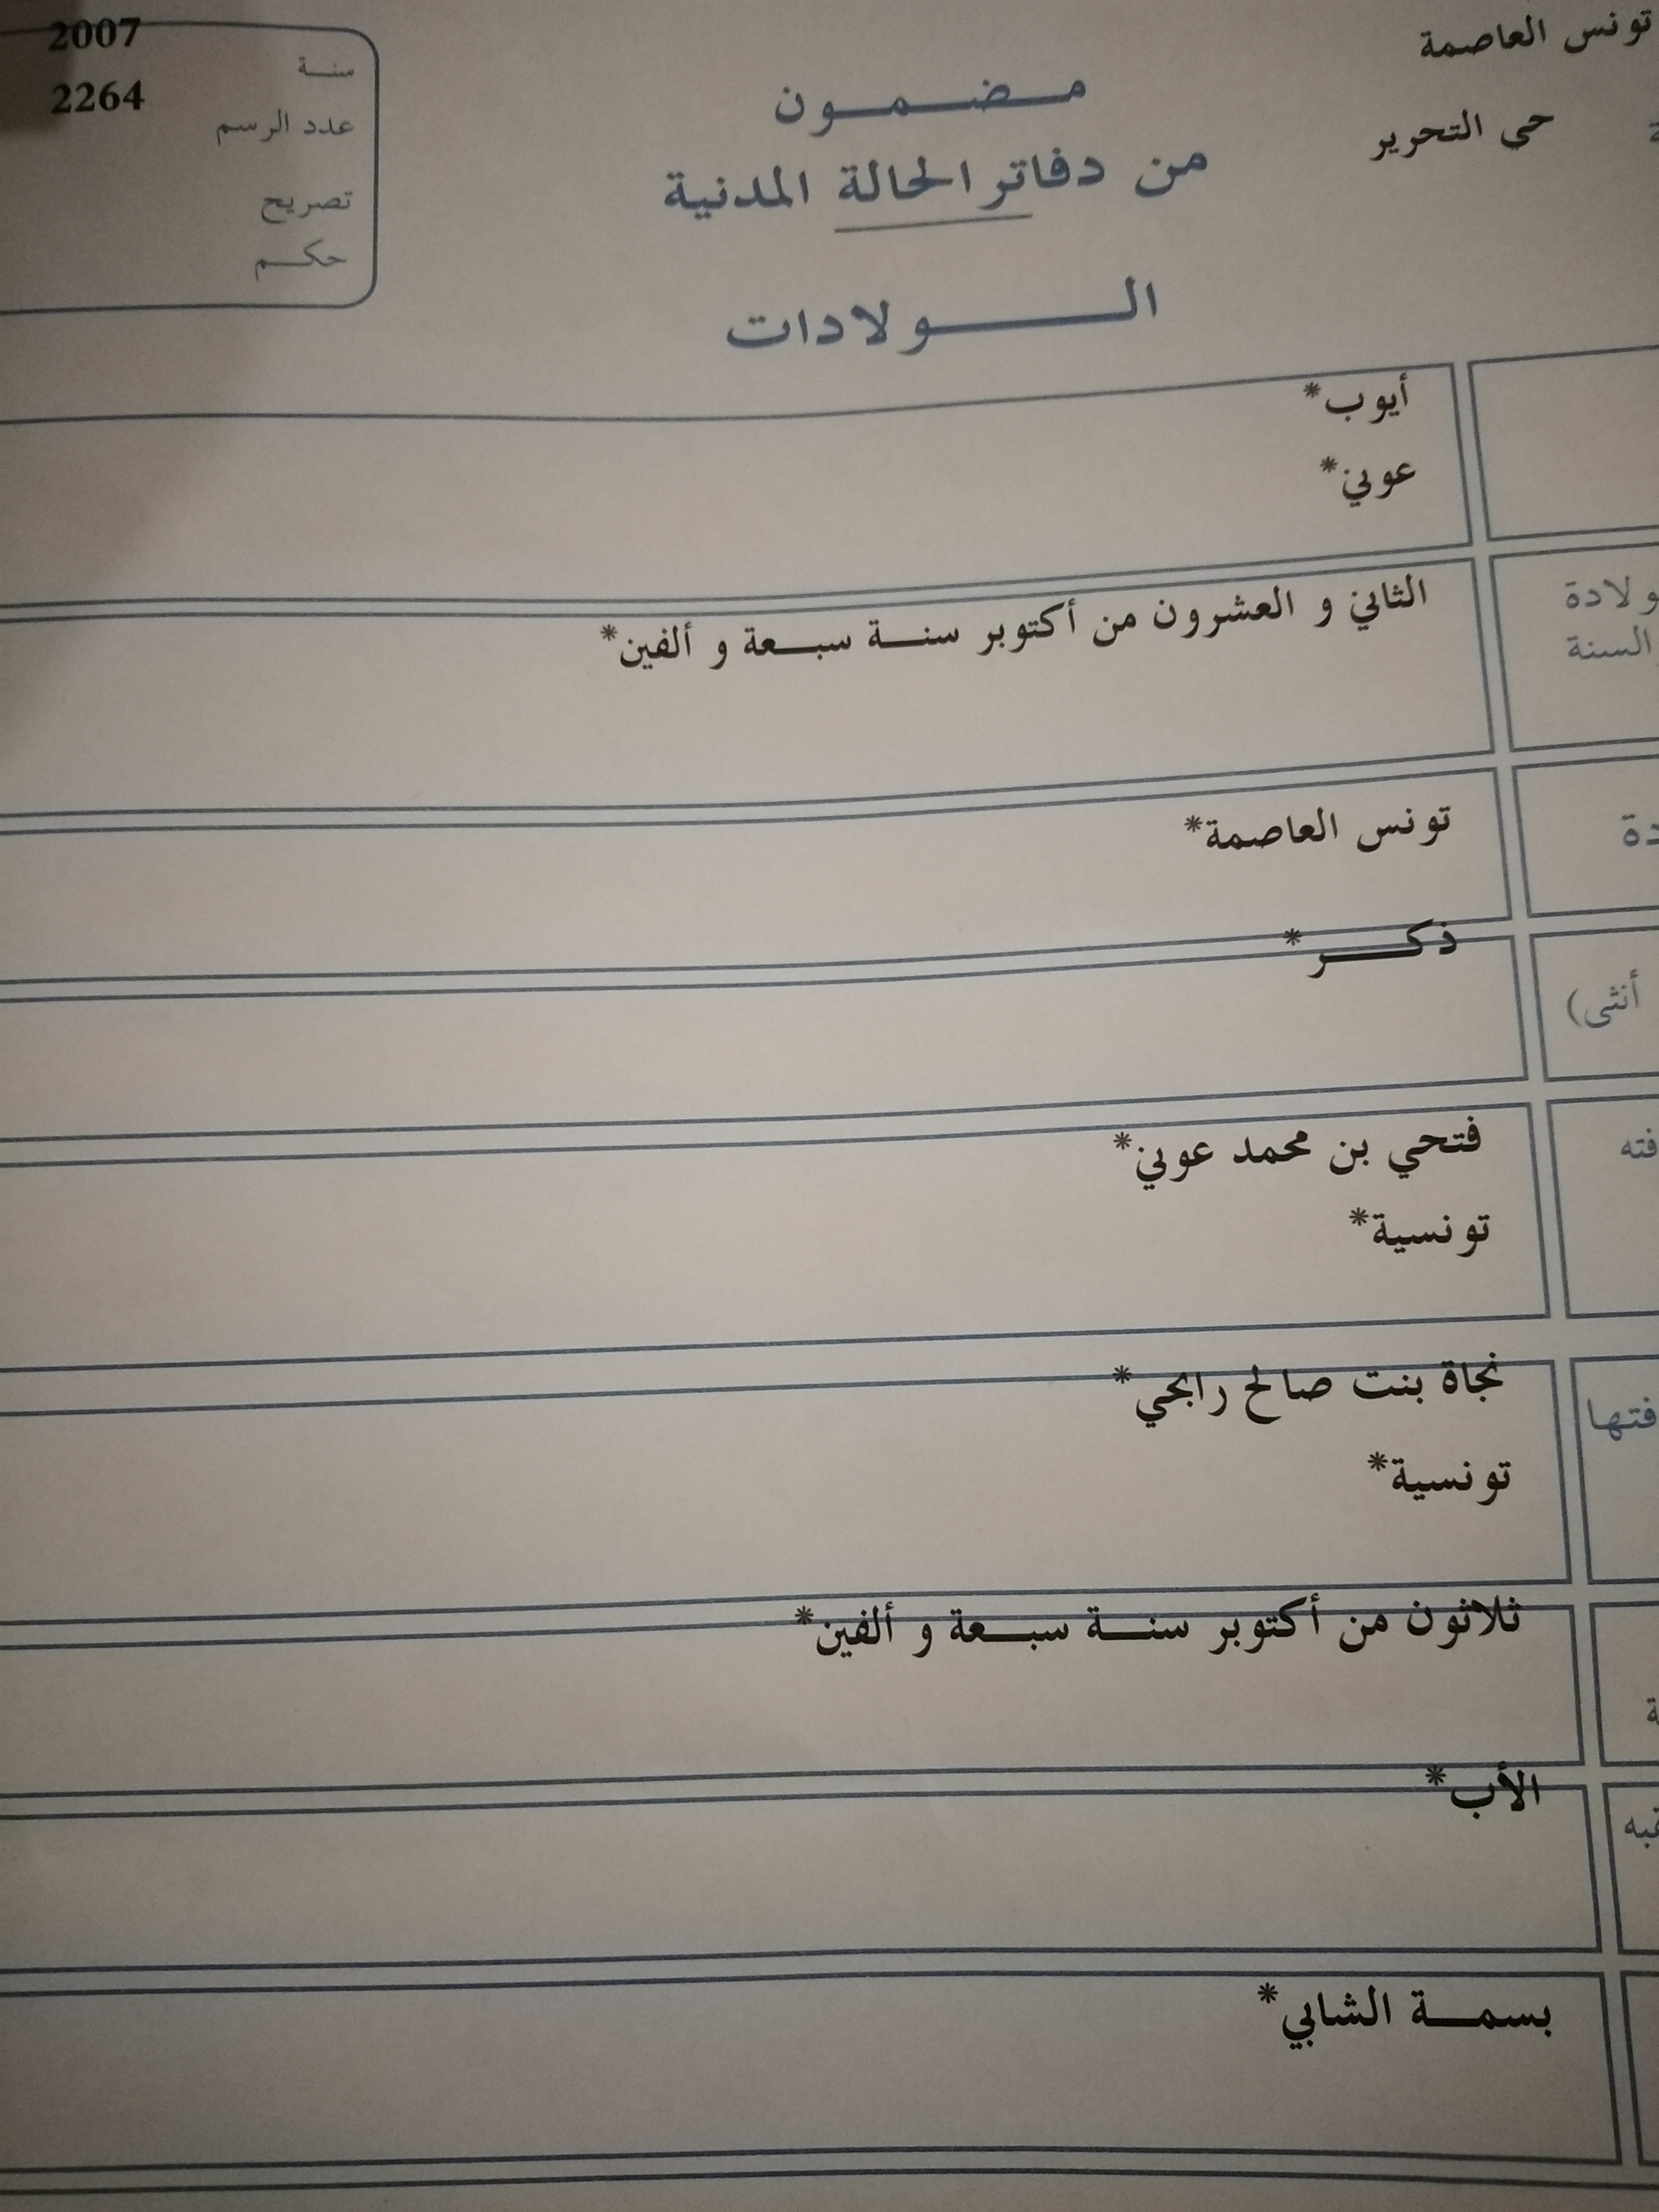 تونس العاصمة
حي التحرير
2007
سنة
2264
عدد الرسم
تصريح
حكم
مضمون
من دفاتر الحالة المدنية
الولادات
أيوب*
عوني*
الثاني و العشرون من أكتوبر سنة سبعة و ألفين*
ولادة
السنة
تونس العاصمة*
دة
ذكر*
أنثى)
فتحي بن محمد عوني*
فته
تونسية*
نجاة بنت صالح رابحي*
فتها
تونسية*
ثلاثون من أكتوبر سنة سبعة و ألفين*
ة
الأب*
قبه
بسمة الشابي*